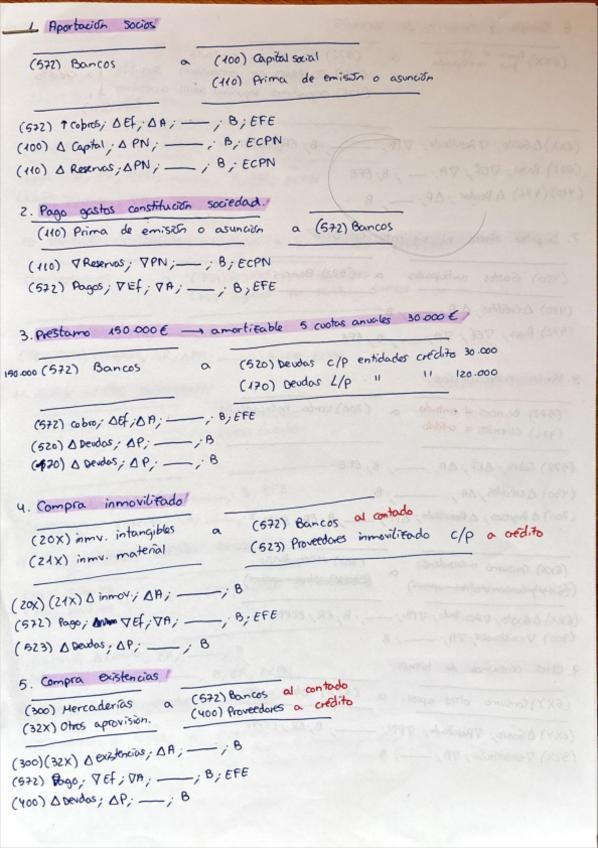 1. Aportación socios.
(572) Bancos a (100) Capital social
(110) Prima de emisión o asunción
(572) ↑ Cobros; ΔEf; ΔA; ——; B; EFE
(100) Δ Capital; ΔPN; ——; B; ECPN
(110) Δ Reservas; ΔPN; ——; B; ECPN
2. Pago gastos constitución sociedad.
(110) Prima de emisión o asunción a (572) Bancos
(110) ∇ Reservas; ∇PN; ——; B; ECPN
(572) Pagos; ∇Ef; ∇A; ——; B; EFE
3. Préstamo 150.000 € → amortizable 5 cuotas anuales 30.000 €
150.000 (572) Bancos a (520) Deudas c/p entidades crédito 30.000
(170) Deudas L/p " " 120.000
(572) cobro; ΔEf; ΔA; ——; B; EFE
(520) Δ Deudas; ΔP; ——; B
(170) Δ Deudas; ΔP; ——; B
4. Compra inmovilizado
(20X) inmv. intangibles a (572) Bancos al contado
(21X) inmv. material (523) Proveedores inmovilizado c/p a crédito
(20X) (21X) Δ inmov; ΔA; ——; B
(572) Pago; ∇Ef; ∇A; ——; B; EFE
(523) Δ Deudas; ΔP; ——; B
5. Compra existencias
(300) Mercaderías a (572) Bancos al contado
(32X) Otros aprovisión. (400) Proveedores a crédito
(300) (32X) Δ existencias; ΔA; ——; B
(572) Pago; ∇Ef; ∇A; ——; B; EFE
(400) Δ Deudas; ΔP; ——; B